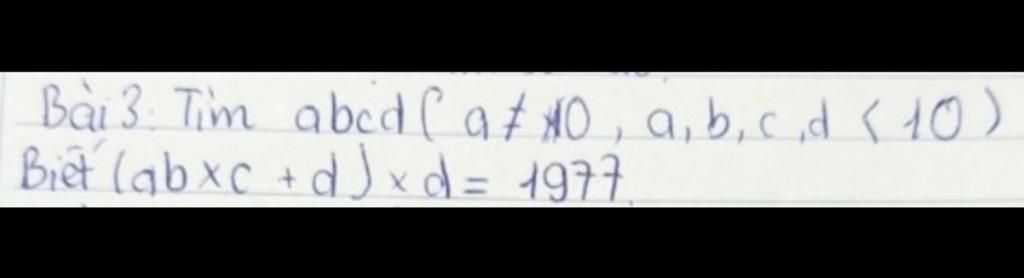 Bài 3: Tìm abcd ( a ≠ 0, a, b, c, d < 10 )
Biết (ab x c + d) x d = 1977